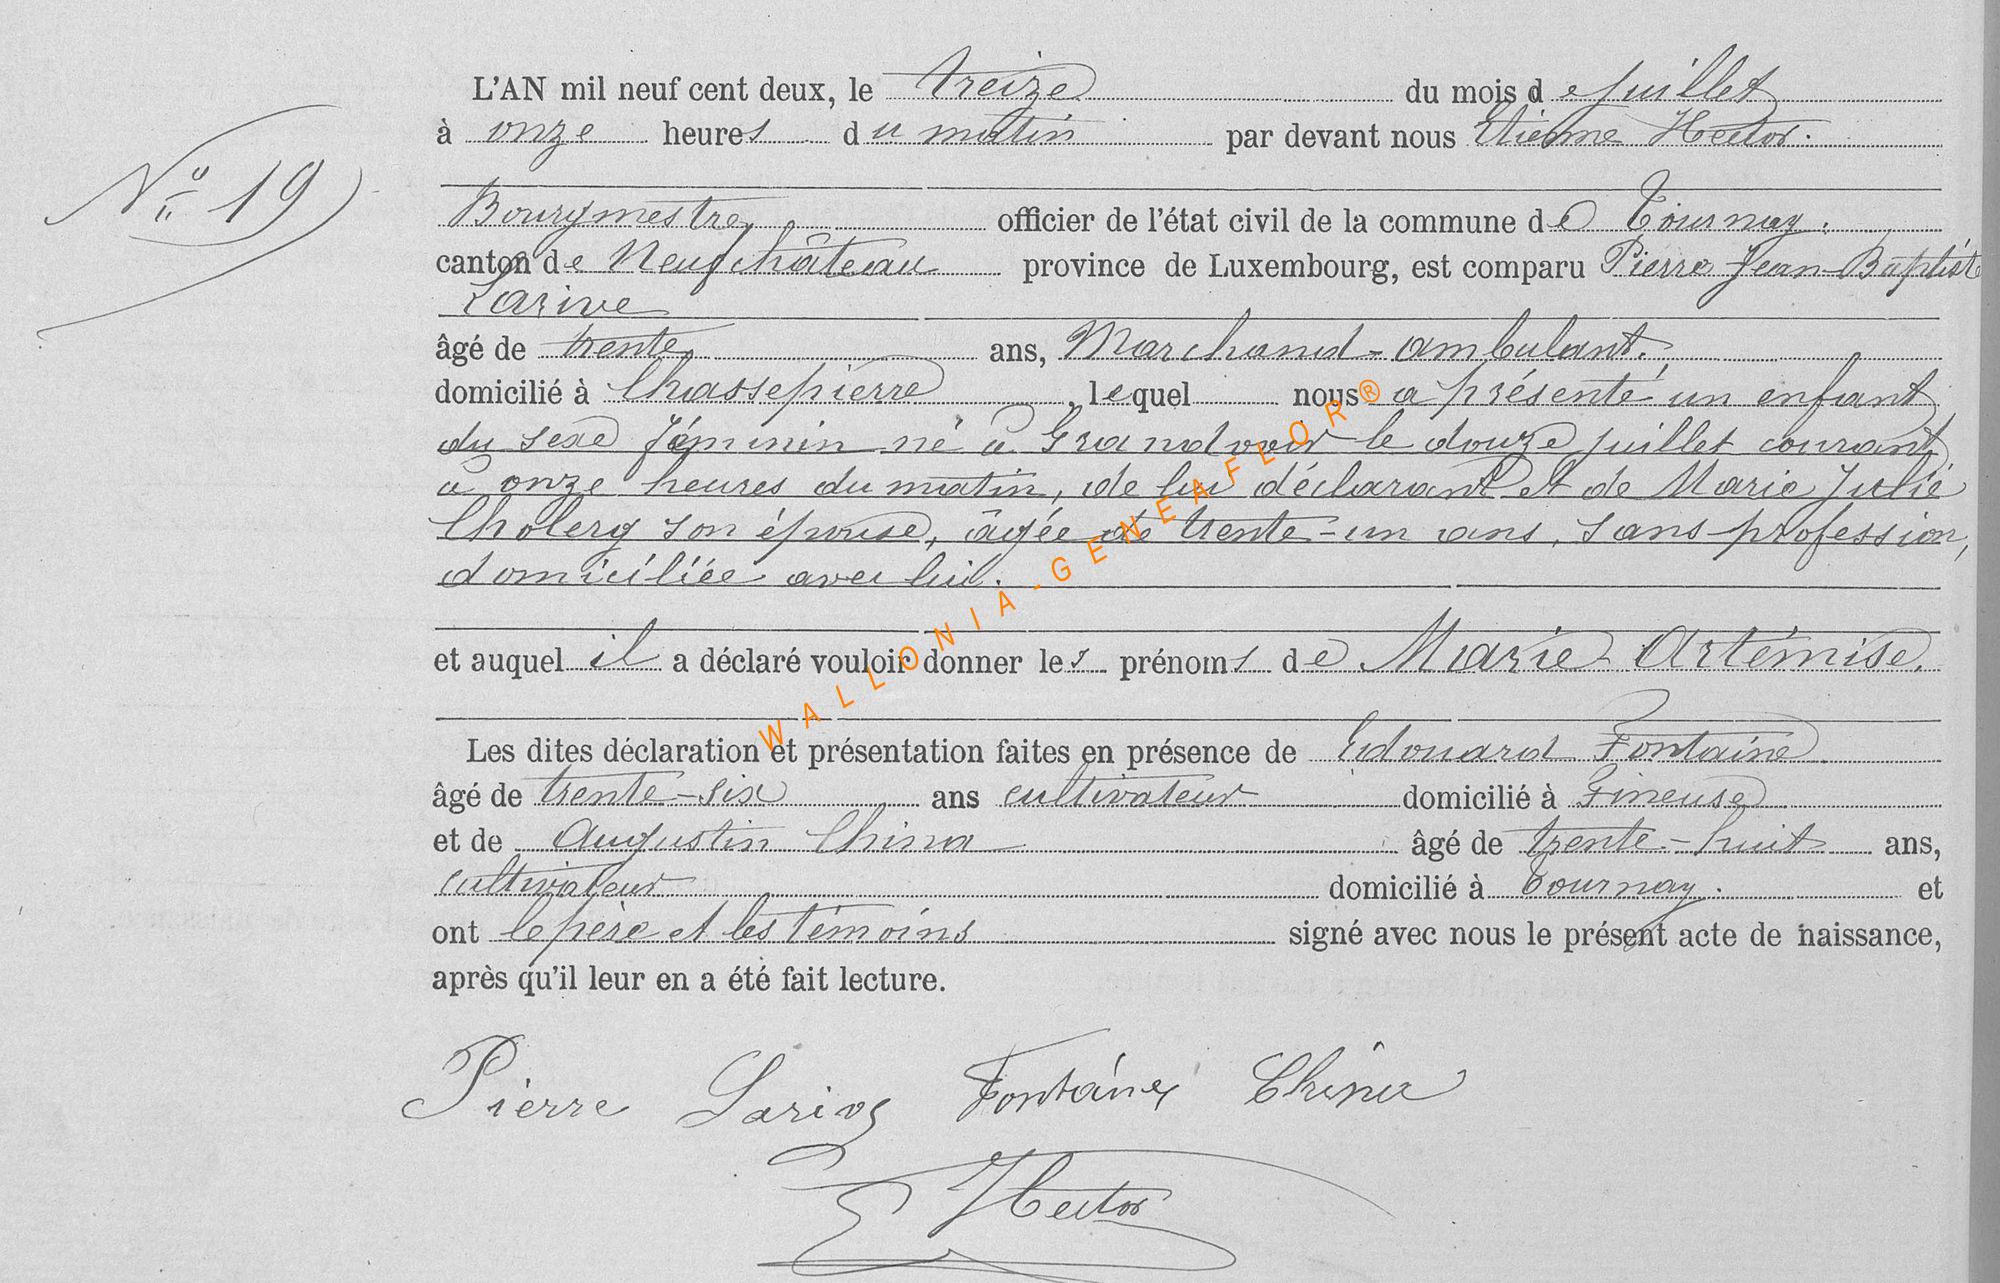 L'AN mil neuf cent deux, le treize du mois de juillet
N° 19
à onze heures du matin par devant nous Etienne Hector.
Bourgmestre officier de l'état civil de la commune de Tournay.
canton de Neufchâteau province de Luxembourg, est comparu Pierre Jean-Baptiste
Larive
âgé de trente ans, Marchand-ambulant.
domicilié à Chassepierre, lequel nous a présenté un enfant
du sexe féminin né à Grandvoir le douze juillet courant
à onze heures du matin, de lui déclarant et de Marie Julie
son épouse, âgée de trente-un ans, sans profession,
domiciliée avec lui.
et auquel il a déclaré vouloir donner les prénoms de Marie Artémise.
Les dites déclaration et présentation faites en présence de Edouard Fontaine
âgé de trente-six ans cultivateur domicilié à Fineuse
et de Augustin China âgé de trente-huit ans,
cultivateur domicilié à Tournay. et
ont le père et les témoins signé avec nous le présent acte de naissance,
après qu'il leur en a été fait lecture.
Pierre Larive Fontaine China
E Hector
WALLONIA-GENEAFLOR®